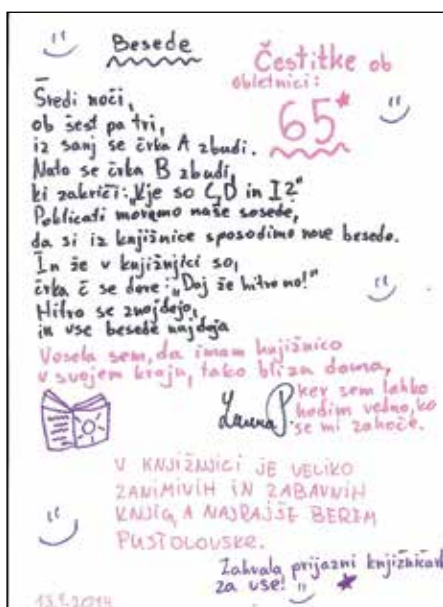 Besede
Čestitke ob
obletnici:
65
Sredi noči,
ob šest pa tri,
iz sanj se črka A zbudi.
Nato se črka B zbudi,
ki zakriči: „Kje so C, D in I?"
Poklicati moramo naše sosede,
da si iz knjižnice sposodimo nove besede.
In že v knjižnjici so,
črka č se dere: „Daj že hitro no!"
Hitro se znajdejo,
in vse besede najdejo
Vesela sem, da imam knjižnico
v svojem kraju, tako blizu doma,
ker sem lahko
hodim vedno, ko
se mi zahoče.
P.
V KNJIŽNJICI JE VELIKO
ZANIMIVIH IN ZABAVNIH
KNJIG, A NAJRAJŠE BEREM
PUSTOLOVSKE.
Zahvala prijazni knjižničarki
za vse!
2014